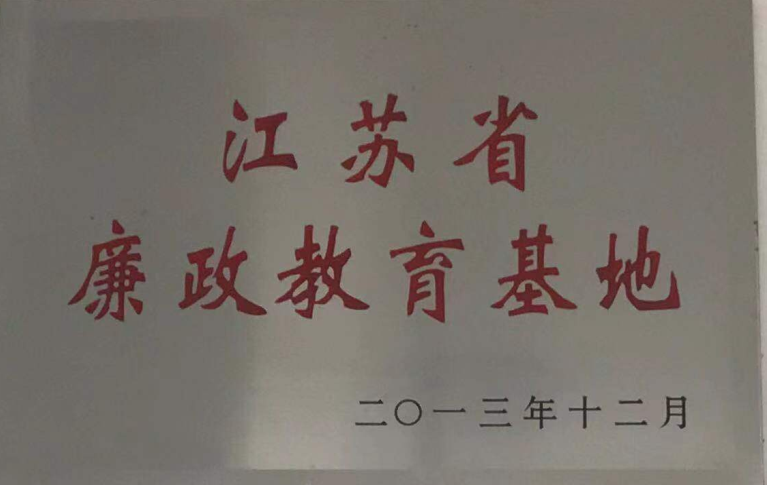 江苏省
廉政教育基地
二〇一三年十二月